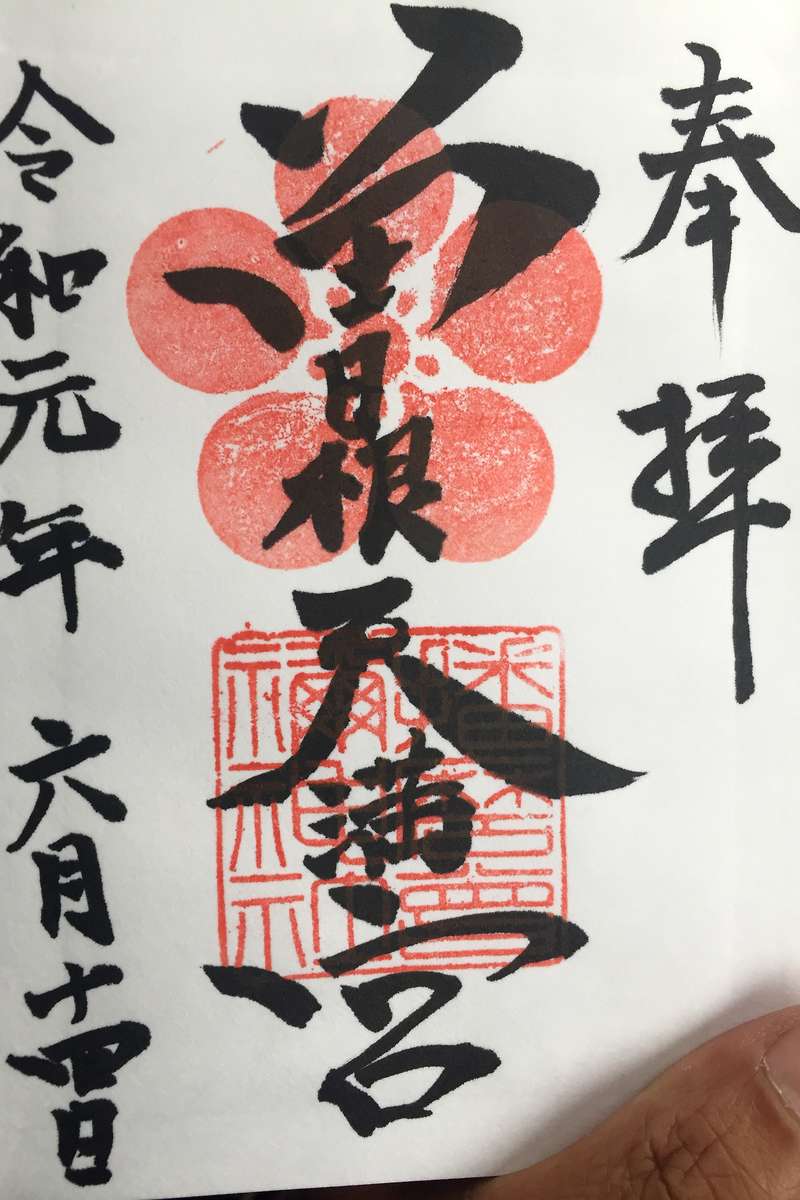 奉拝
曽根天満宮
令和元年六月十四日